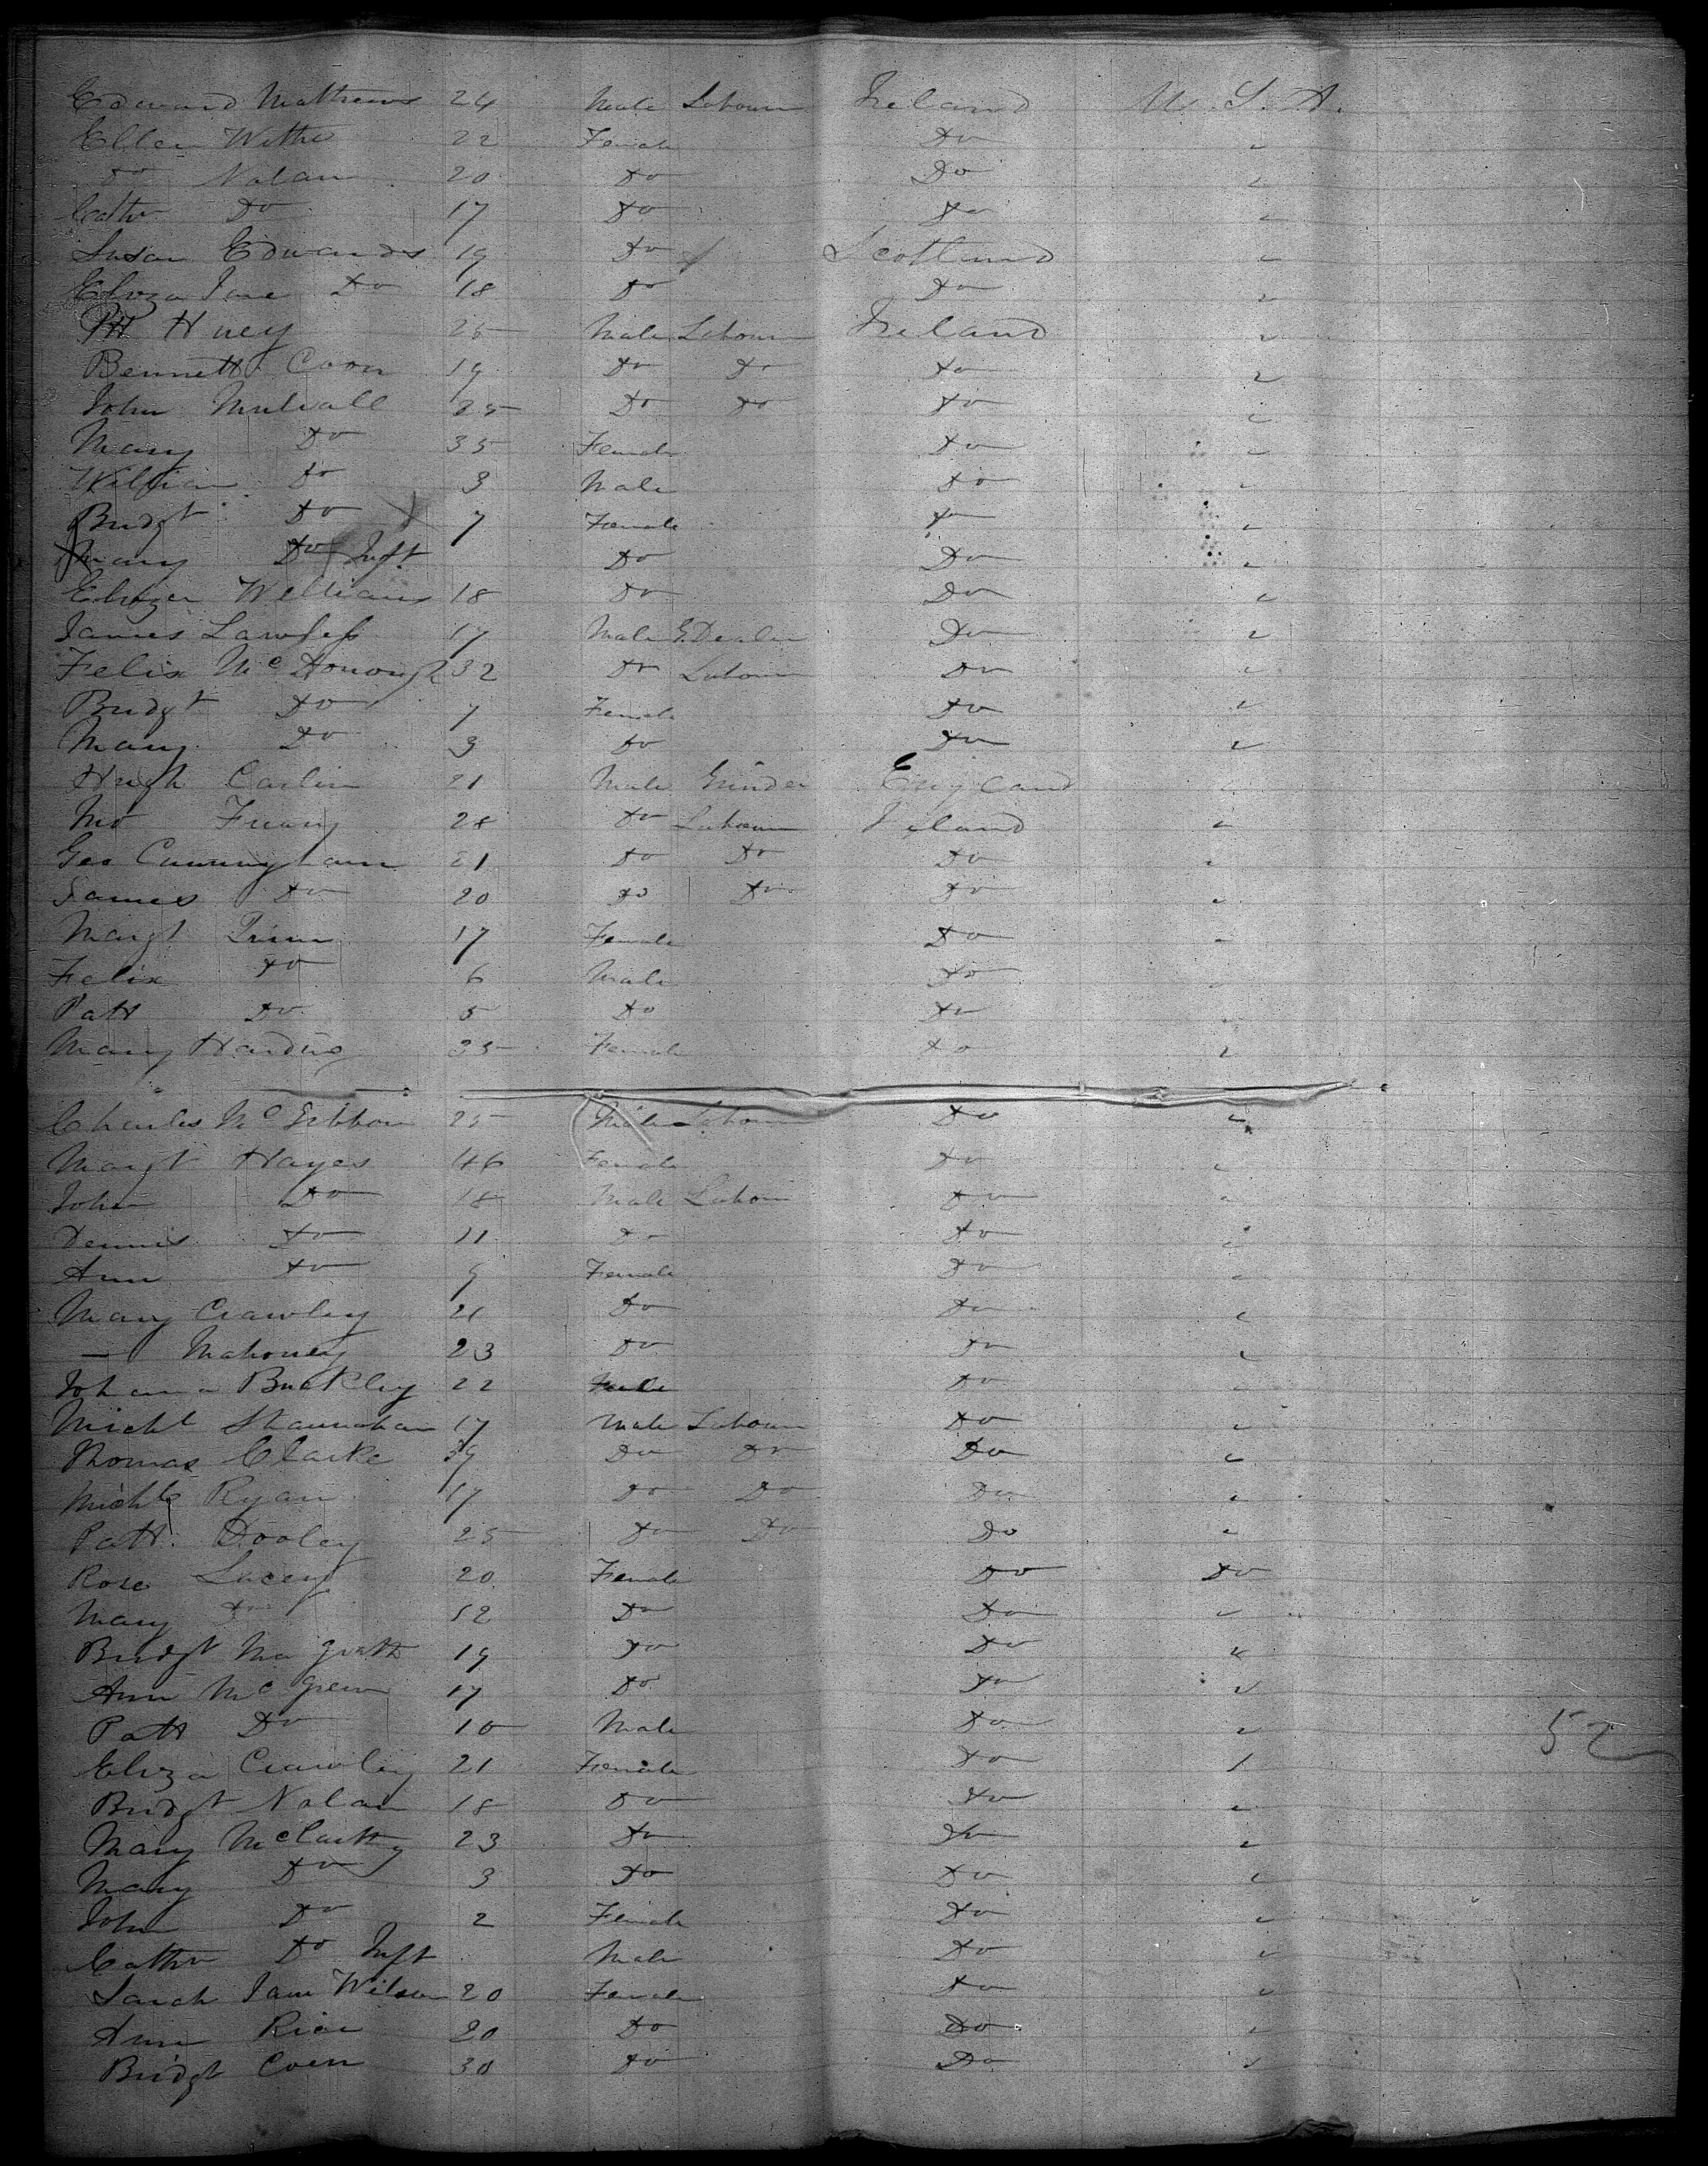 Edward Mathews 24 Male Labourer Ireland U.S.A.
Ellen Withe 22 Female Do "
Do Nolan 20 Do Do "
Cathe Do 17 Do Do "
Susan Edwards 19 Do Scotland "
Eliza Jane Do 18 Do Do "
Patt Huey 25 Male Labourer Ireland "
Bennett Coon 19 Do Do Do "
John Mulvall 35 Do Do Do "
Mary Do 35 Female Do "
William Do 3 Male Do "
Bridgt Do 7 Female Do "
Mary Do Inft Do Do "
Williams 18 Do Do "
James Lawless 17 Male G. Dealer Do "
Felix McDonough 32 Do Labourer Do "
Bridgt Do 7 Female Do "
Mary Do 3 Do Do "
Hugh Carlin 21 Male Grinder England "
28 Do Labourer Ireland "
Geo Cunningham 21 Do Do Do "
James Do 20 Do Do Do "
Margt 17 Female Do "
Felix Do 6 Male Do "
Patt Do 5 Do Do "
Mary Harding 35 Female Do "
Charles McGibbon 25 Male Labour Do "
Margt Hayes 46 Female Do "
John Do 18 Male Labour Do "
Dennis Do 11 Do Do "
Ann Do 9 Female Do "
Mary Crawley 21 Do Do "
— Mahoney 23 Do Do "
Johanna Buckley 22 Do "
Michl Shaunahan 17 Male Labourer Do "
Thomas Clarke 39 Do Do Do "
Michl Ryan 17 Do Do Do "
Patt. Dooley 25 Do Do Do "
Rose Lacey 20 Female Do Do
Mary Do 52 Do Do "
Bridgt Magrath 19 Do Do "
Ann McGreen 17 Do Do "
Patt Do 10 Male Do "
Eliza Crawley 21 Female Do "
Bridgt Nolan 18 Do Do "
Mary McCarthy 23 Do Do "
Mary Do 3 Do Do "
John Do 2 Female Do "
Cathe Do Inft Male Do "
Sarah Jane Wilson 20 Female Do "
Ann Rice 20 Do Do "
Bridgt Coen 30 Do Do "
52